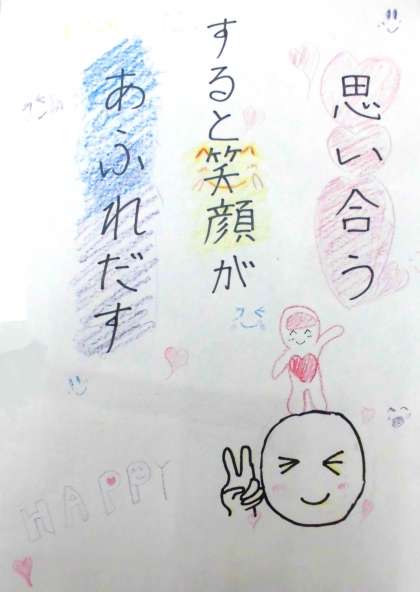 思い合う
すると笑顔が
あふれだす
HAPPY